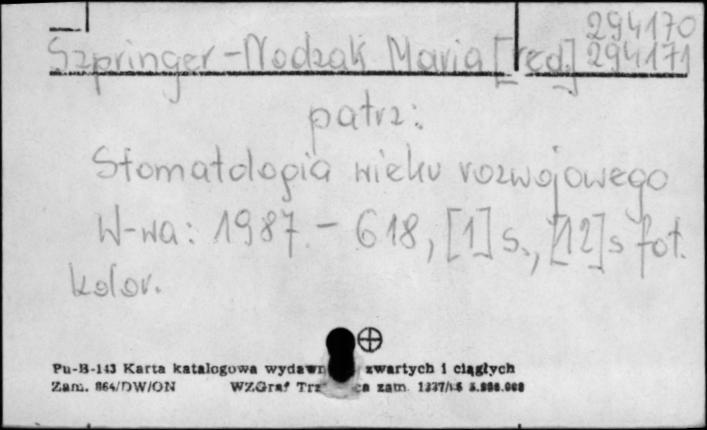 294170
Szpringer-Nodzak Maria [red] 294171
patrz:
Stomatologia wieku rozwojowego
W-wa: 1987. - 618, [1] s., [12] s fot.
kolor.
Pu-B-143 Karta katalogowa zwartych i ciągłych
Zam. 864/DW/ON WZGraf zam.